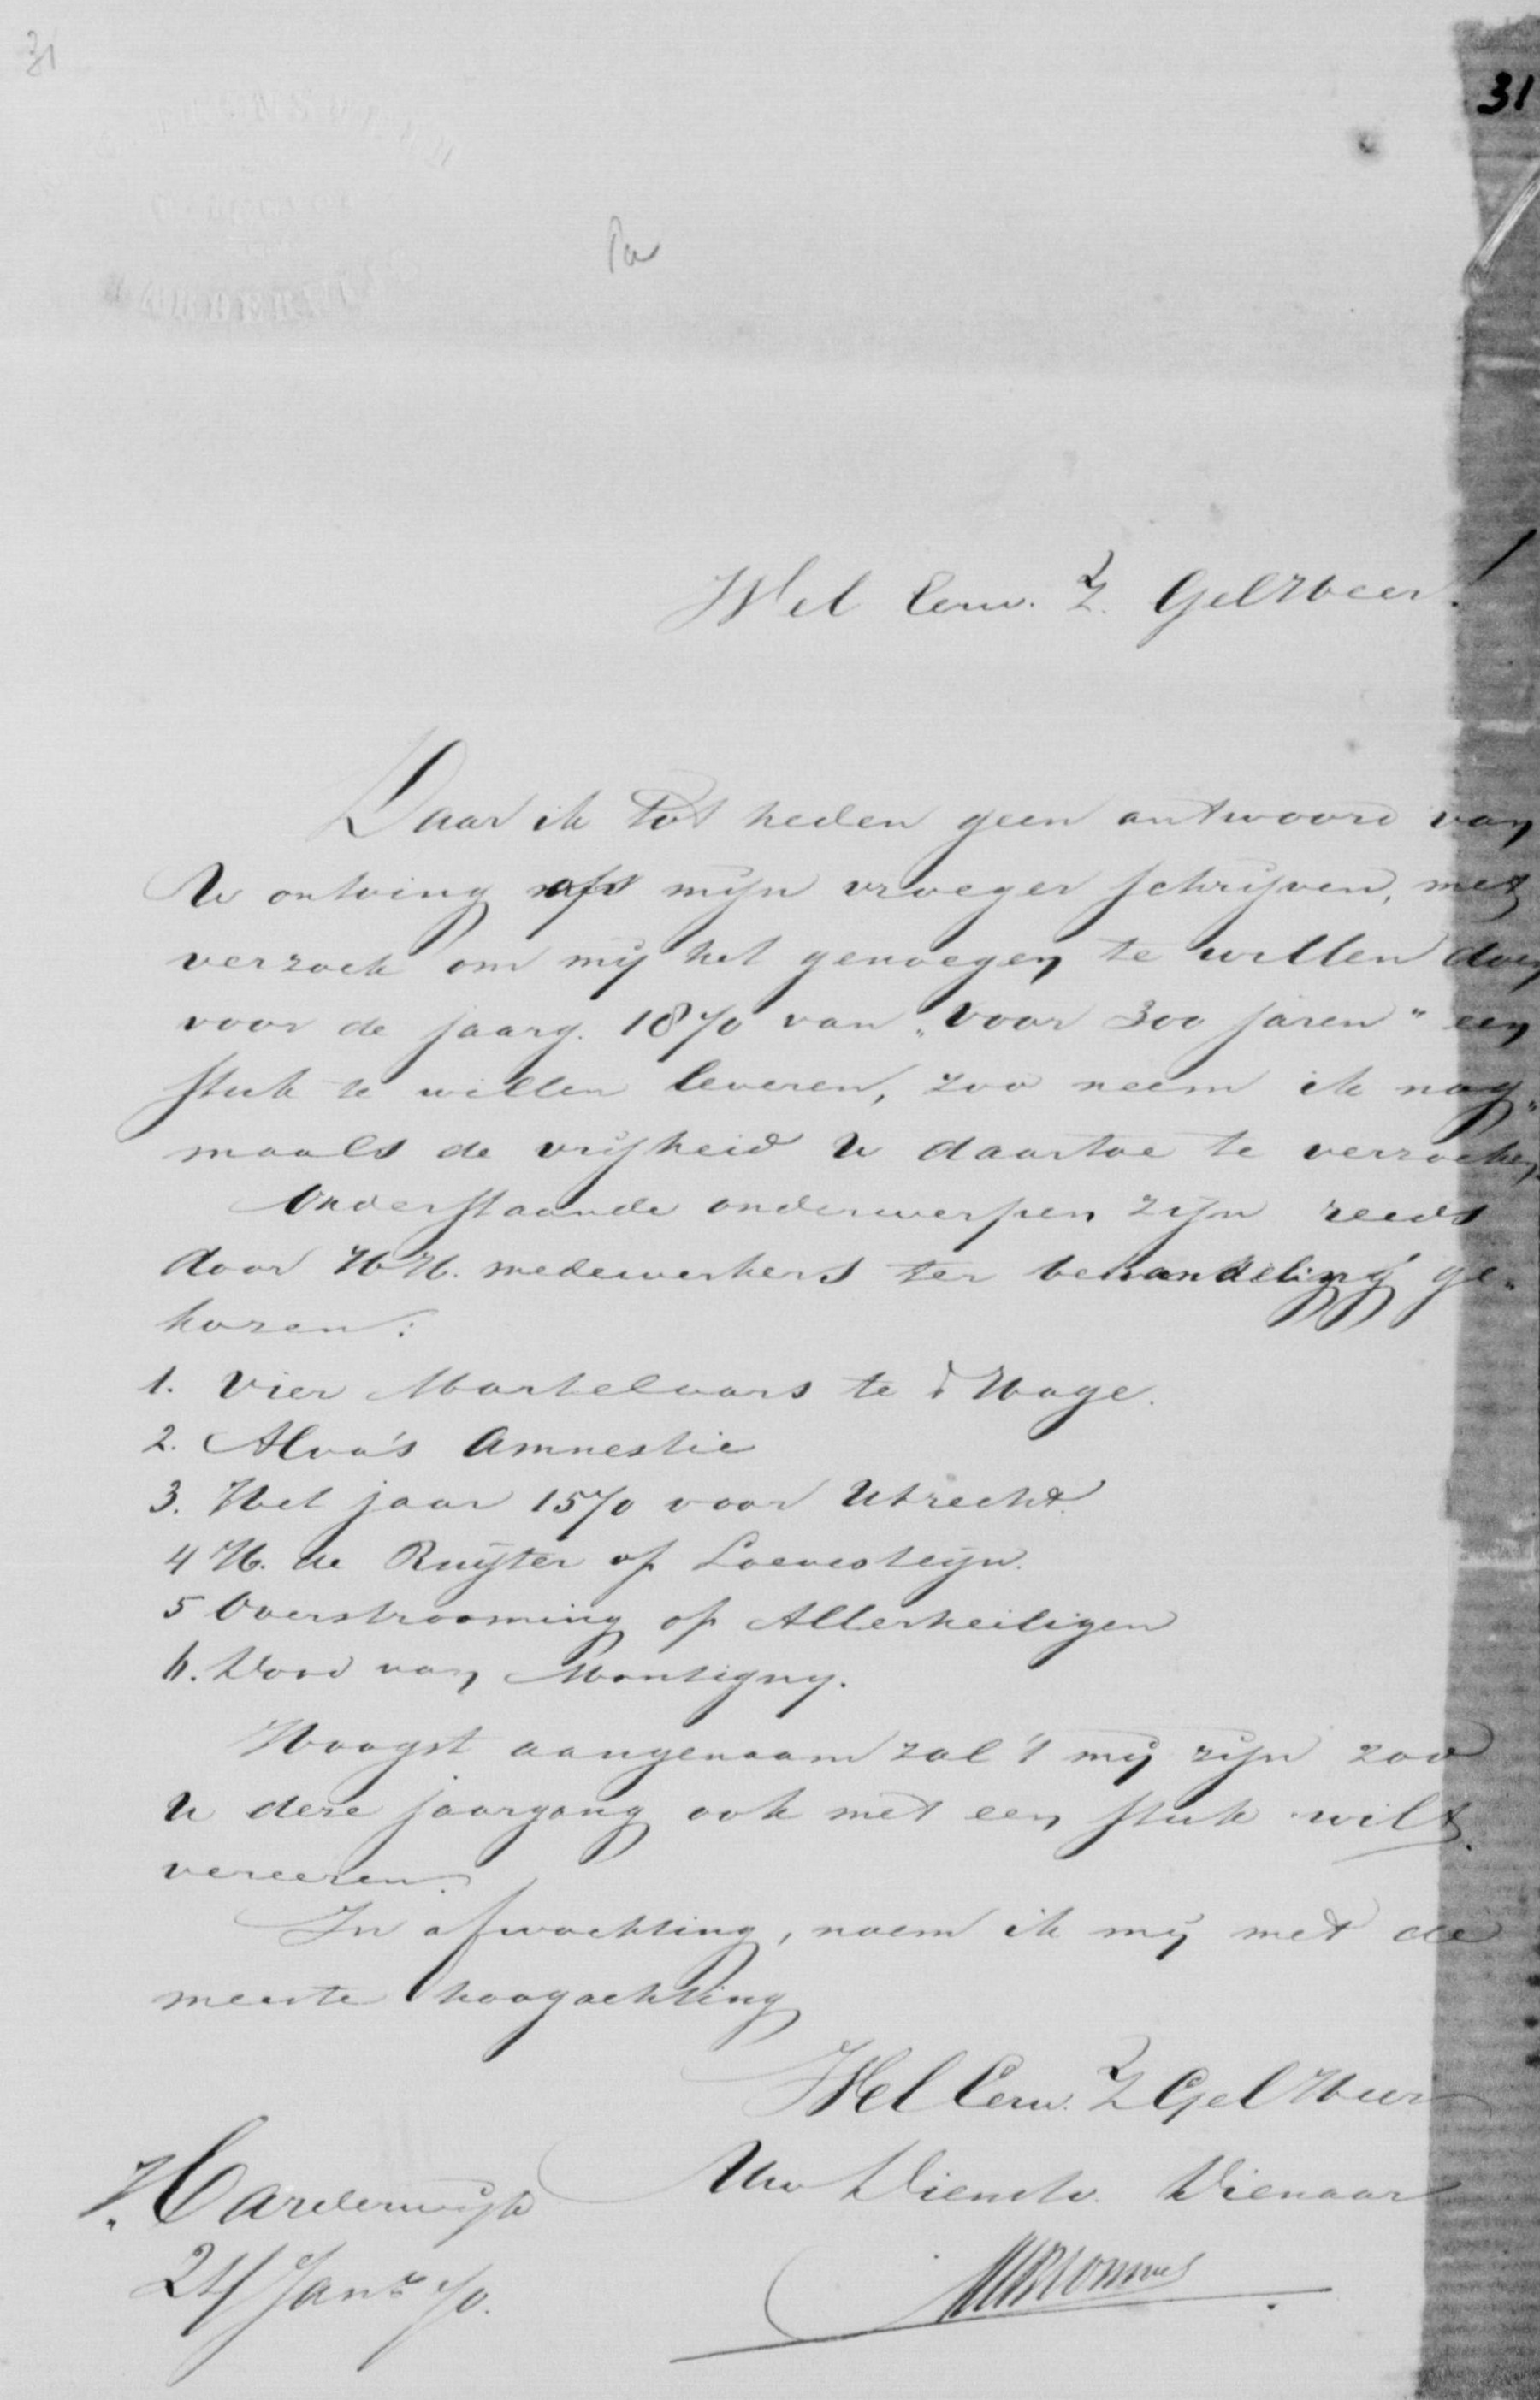 31
31
Wel Eerw. Z. Gel Heer!
Daar ik tot heden geen antwoord van
U ontving op mijn vroeger schrijven, met
verzoek om mij het genoegen te willen doen
voor de jaarg. 1870 van „Voor 300 jaren" een
stuk te willen leveren, zoo neem ik nog„
maals de vrijheid U daartoe te verzoeken
Onderstaande onderwerpen zijn reeds
door HH. medewerkers ter behandeling ge„
kozen:
1. Vier Martelaars te 's Hage.
2. Alva's Amnestie
3. Het jaar 1570 voor Utrecht.
4 H. de Ruijter op Loevesteijn.
5 Overstrooming op Allerheiligen
6. Dood van Montigny.
Hoogst aangenaam zal 't mij zijn zoo
U deze jaargang ook met een stuk wilt
vereeren.
In afwachting, noem ik mij met de
meeste hoogachting
Wel Eerw. Z Gel Heer
Uw Dienstv. Dienaar
Harderwijk
24 Jan. 70.